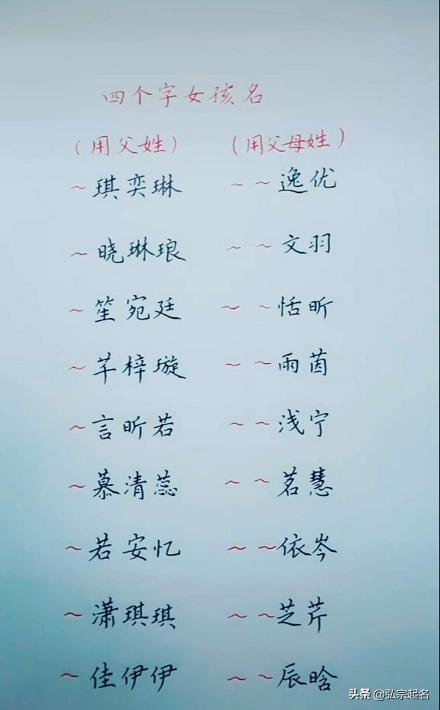 四个字女孩名
（用父姓） （用父母姓）
~琪奕琳 ~~逸优
~晓琳琅 ~~文羽
~笙宛廷 ~~恬昕
~芊梓璇 ~~雨茵
~言昕若 ~~浅宁
~慕清蕊 ~~茗慧
~若安忆 ~~依岑
~潇琪琪 ~~芝芹
~佳伊伊 ~~辰晗
头条 @弘宗起名